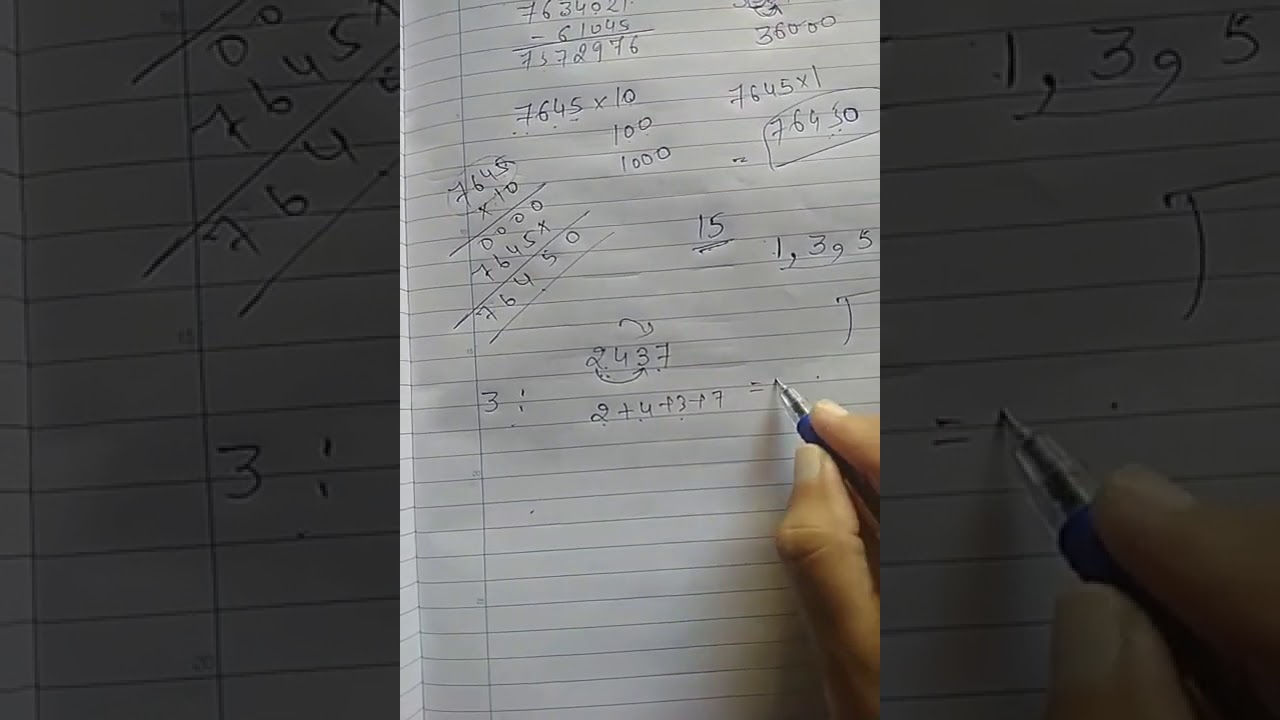 7634021
- 61045
7572976
36000
7645 × 10
100
1000
7645 × 1
= 76450
7645
× 10
0000
7645×
76450
15
1, 3, 5
2437
3 :
2 + 4 + 3 + 7 =